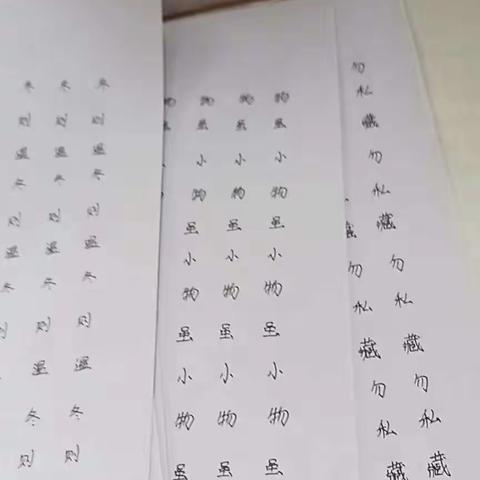 冬 冬 冬
则 则 则
温 温 温
冬 冬 冬
则 则 则
温 温 温
冬 冬 冬
则 则 则
温 温
冬 冬
则 则
物 物 物
虽 虽 虽
小 小 小
物 物 物
虽 虽 虽
小 小 小
物 物 物
虽 虽 虽
小 小 小
物 物 物
虽 虽 虽
勿
私
藏
勿
私
藏
勿 勿
私 私
藏 藏
勿 勿
私 私
藏 藏